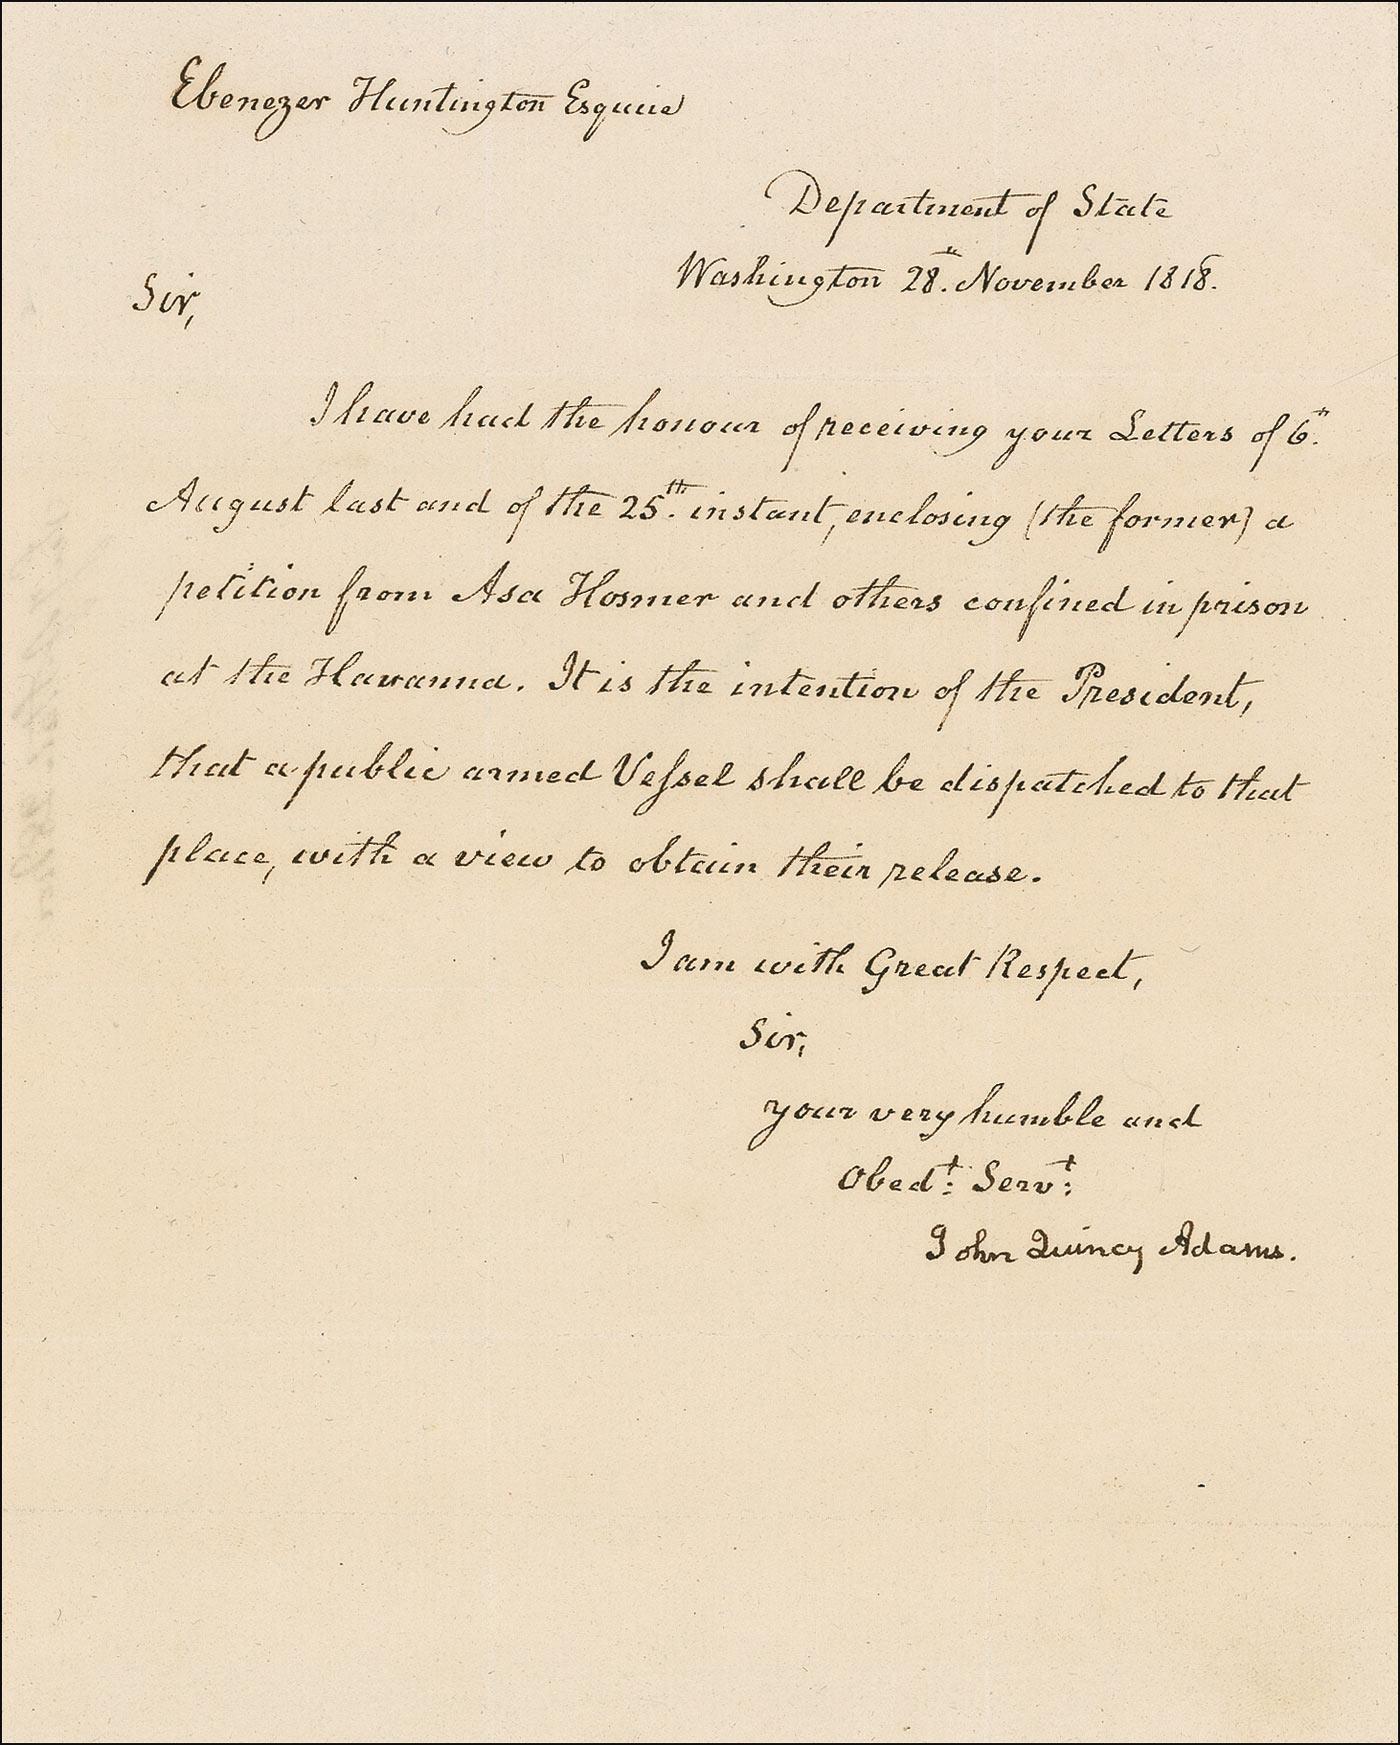 Ebenezer Huntington Esquire
Department of State
Washington 28th. November 1818.
Sir,
I have had the honour of receiving your Letters of 6th.
August last and of the 25th. instant, enclosing (the former) a
petition from Asa Hosmer and others confined in prison
at the Havanna. It is the intention of the President,
that a public armed Vessel shall be dispatched to that
place, with a view to obtain their release.
I am with Great Respect,
Sir,
your very humble and
Obedt: Servt:
John Quincy Adams.